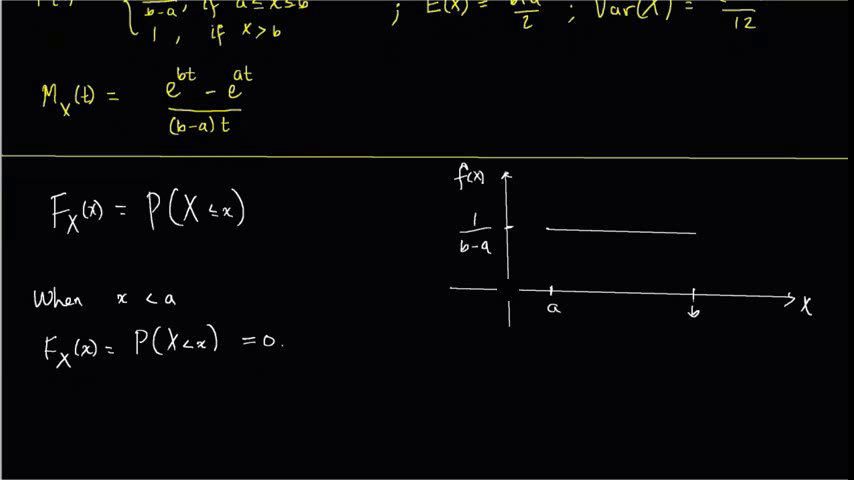 b-a , if a ≤ x ≤ b
1 , if x > b
; E(X) = 
2
; Var(X) =
12
M_X(t) = e^{bt} - e^{at}
(b-a)t
F_X(x) = P(X ≤ x)
When x < a
F_X(x) = P(X < x) = 0.
f(x)
1
b-a
a
b
X